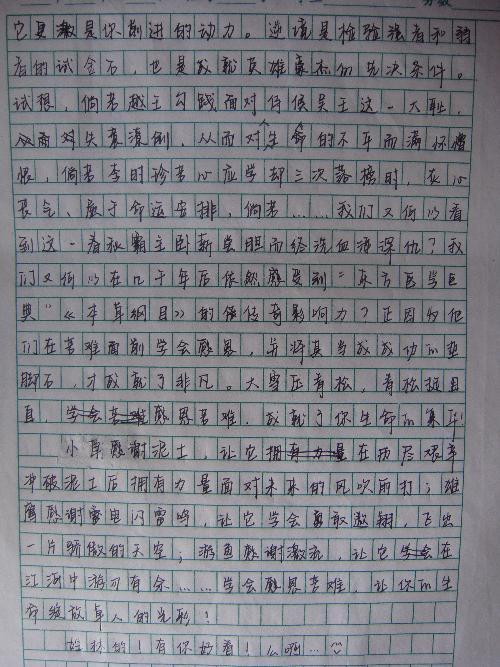 它更激是你前进的动力。逆境是检验强者和弱
者的试金石，也是成就英雄豪杰的先决条件。
试想，倘若越王勾践面对侍候吴王这一大耻，
从而对失意溃倒，从而对生命的不平而满怀憎
恨，倘若李时珍苦心应学却三次落榜时，灰心
丧气、屈于命运安排，倘若……我们又何以看
到这一春秋霸主卧薪尝胆而终洗血海深仇？我
们又何以在几千年后依然感受到“东方医学巨
典”《本草纲目》的传奇影响力？正因为他
们在苦难面前学会感恩，并将其当成成功的垫
脚石，才成就了非凡。大雪压青松，青松挺且
直，学会苦难感恩苦难，成就了你生命的集 !
小草感谢泥土，让它拥有力量在历尽艰辛
冲破泥土后拥有力量面对未来的风吹雨打；雄
鹰感谢雷电闪雷鸣，让它学会勇敢翱翔，飞出
一片骄傲的天空；游鱼感谢激流，让它学会在
江海中游刃有余……学会感恩苦难，让你的生
命绽放卓人的光彩！
姓林的！有你好看！么啊…